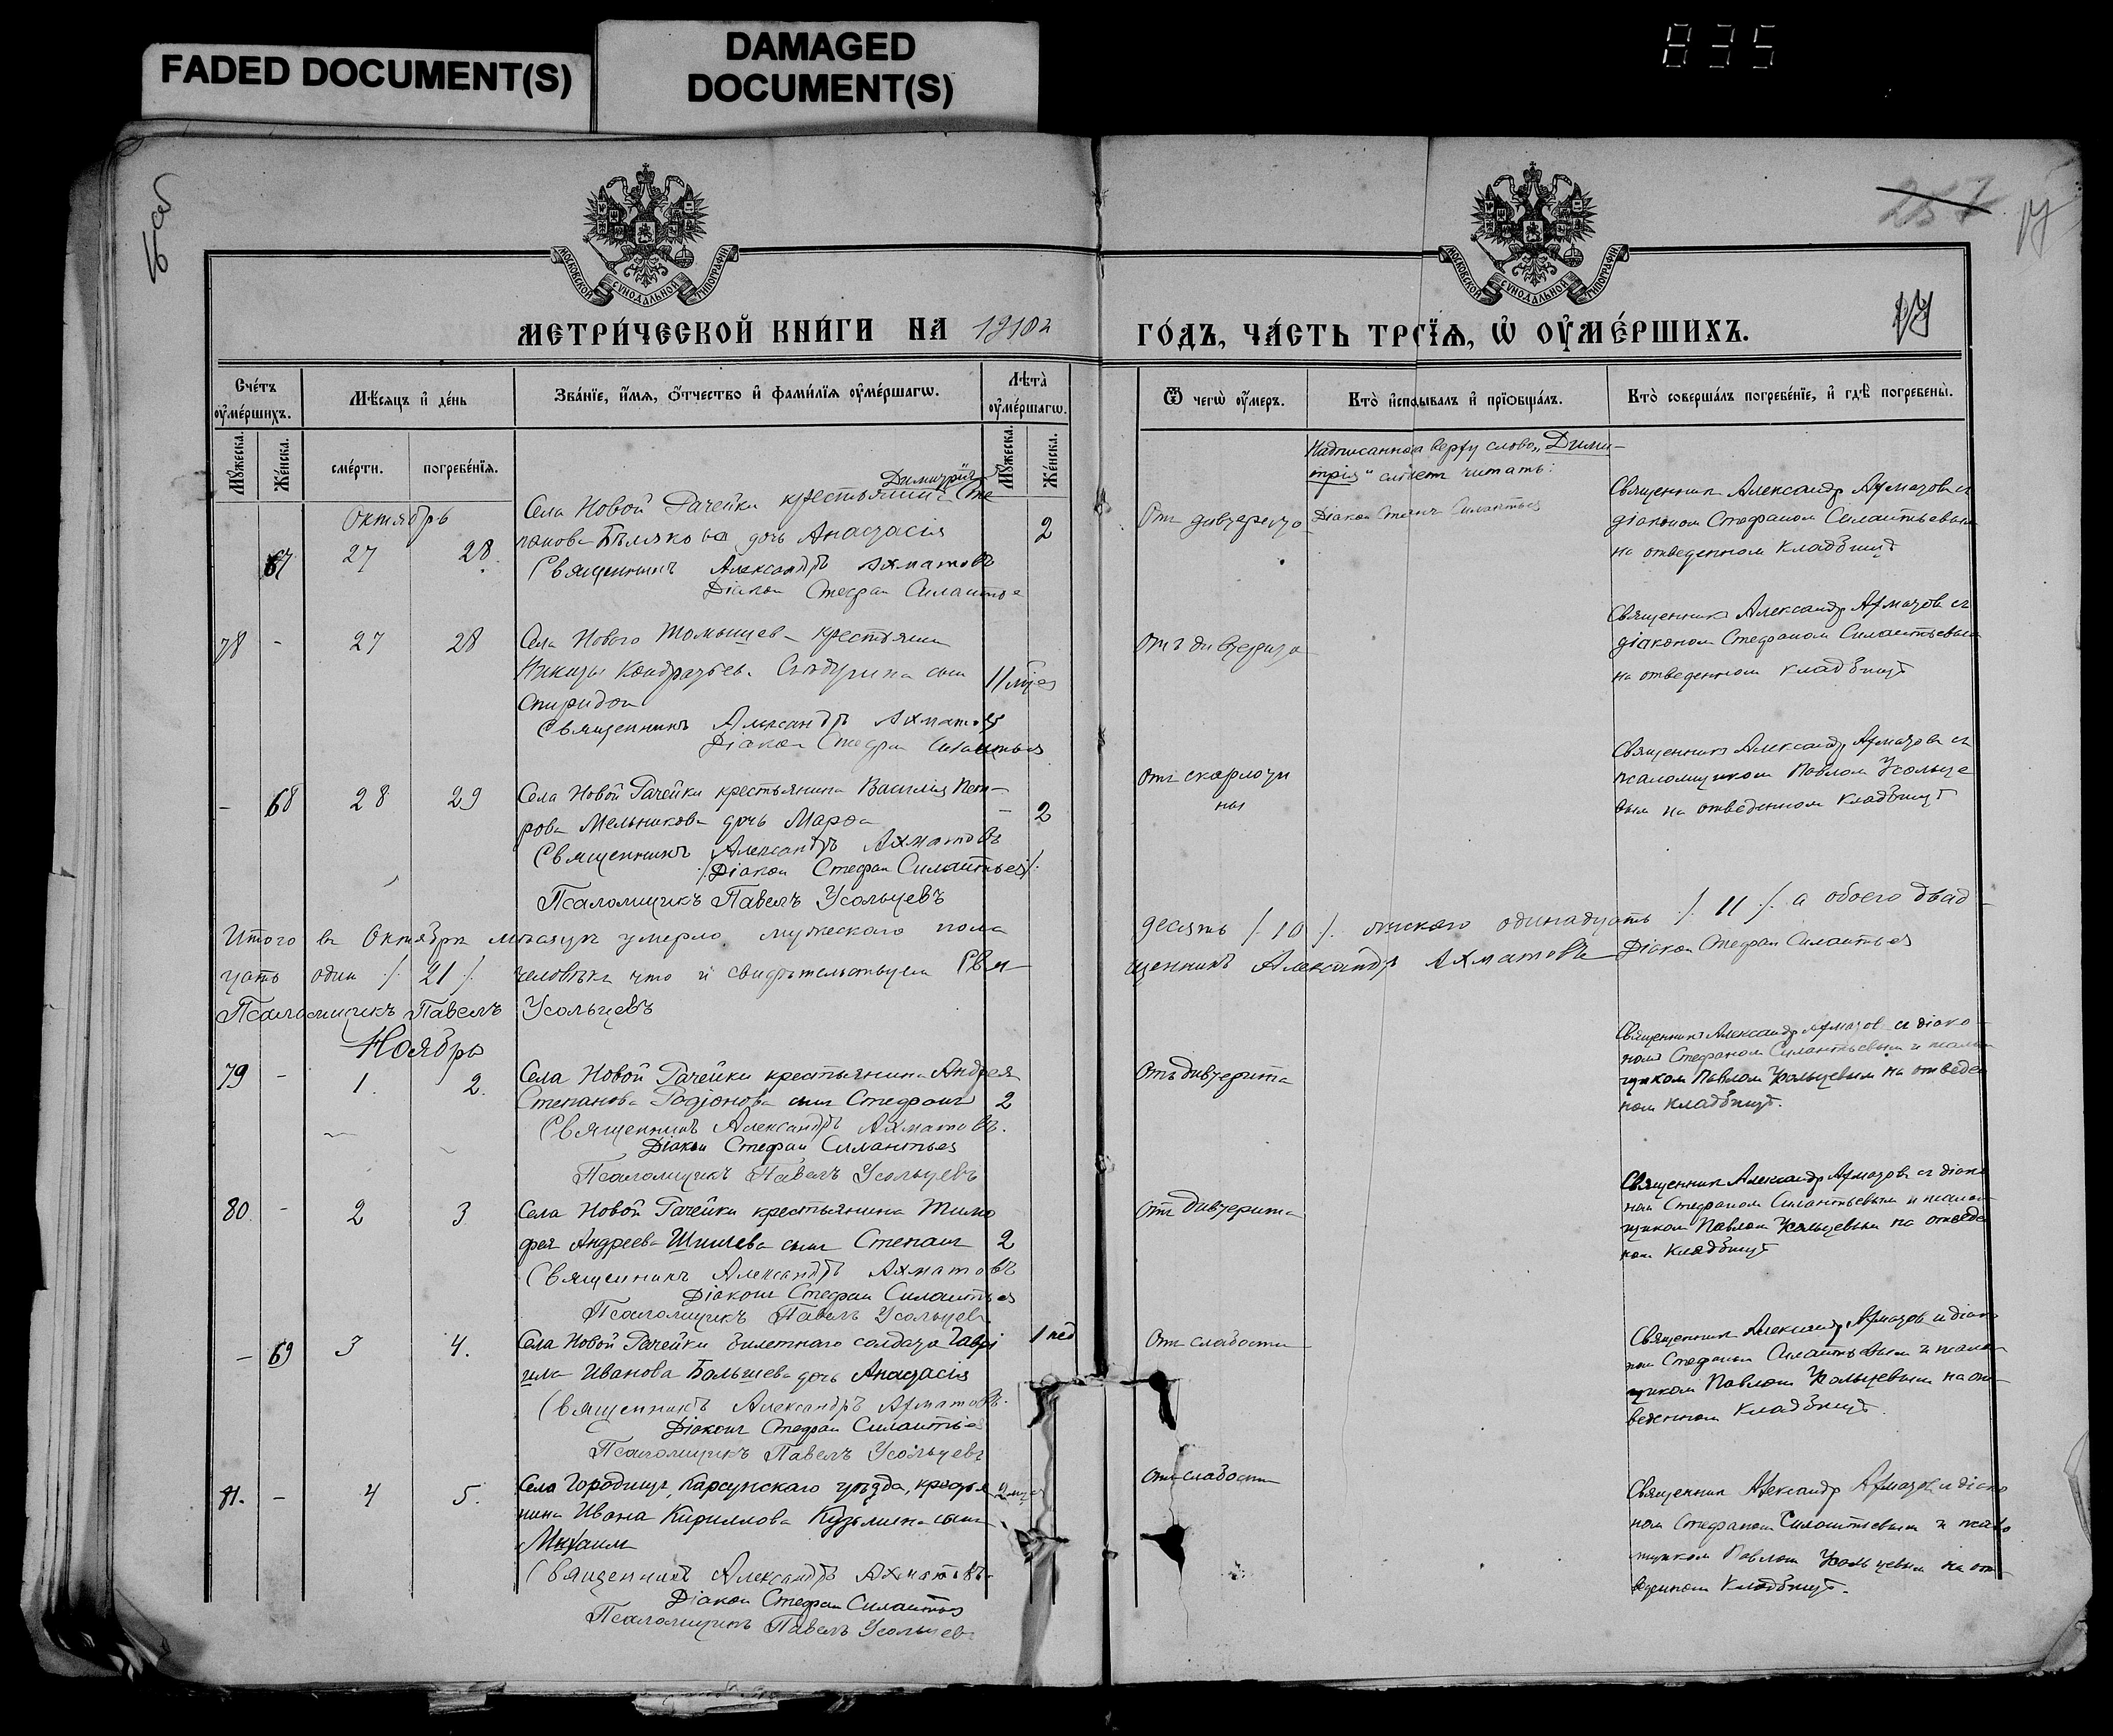 FADED DOCUMENT(S)
DAMAGED
DOCUMENT(S)
835
257
МОСКОВСКОЙ СѴНОДАЛЬНОЙ ТИПОГРАФІИ
МОСКОВСКОЙ СѴНОДАЛЬНОЙ ТИПОГРАФІИ
МЕТРИ́ЧЕСКОЙ КНИ́ГИ НА 1910 г
ГО́ДЪ, ЧА́СТЬ ТРЕ́ТІѦ, Ѡ҆ ОУ҆МЕ́РШИХЪ.
Сче́тъ оу҆ме́ршихъ.
Мѣ́сяцъ и҆ де́нь
Зва́нїе, и҆́мѧ, ѻ҆́тчество и҆ фами́лїѧ оу҆ме́ршагѡ.
Лѣ̀та̀ оу҆ме́ршагѡ.
Ѿ чегѡ̀ оу҆́меръ.
Кто̀ и҆сповѣ́дывалъ и҆ прїѡбща́лъ.
Кто̀ соверша́лъ погребе́нїе, и҆ гдѣ̀ погребены̀.
Мꙋ́жеска.
Же́нска.
сме́рти.
погребе́нїѧ.
Мꙋ́жеска.
Же́нска.
Октябрь
67 27 28.
Димитрія
Села Новой Рачейки крестьянина Сте
панова Бѣлякова дочь Анастасія
2
Священникъ Александръ Ахматовъ
Діакон Стефан Силантьев
От дифтерита
Надписанное вверху слово „Дими-
трія" слѣдует читать:
Діакон Стефан Силантьев
Священник Александр Ахматов съ
діаконом Стефаном Силантьевым
на отведенном кладбищѣ
78 - 27 28
Села Нового Томышева крестьянина
Никиты Кондратьева сын
Спиридон
11 мѣс
Священникъ Александръ Ахматовъ
Діакон Стефан Силантьев
Отъ дифтерита
Священникъ Александр Ахматов съ
діаконом Стефаном Силантьевым
на отведенном кладбищѣ
- 68 28 29
Села Новой Рачейки крестьянина Василія Пет-
рова Мельникова дочь Марѳа
- 2
Священникъ Александръ Ахматовъ
/Діакон Стефан Силантьев/.
Псаломщикъ Павелъ Усольцевъ
Отъ скарлати
ны
Священникъ Александр Ахматовъ съ
псаломщиком Павлом Усольце
вым на отведенном кладбищѣ
Итого въ Октябрѣ мѣсяцѣ умерло мужескаго пола
десять /. 10 /. женского одинадцать /. 11 /. а обоего двад-
цать один /. 21 /. человѣка что и свидѣтельствуем Свя-
щенникъ Александръ Ахматовъ Діакон Стефан Силантьев
Псаломщикъ Павелъ Усольцевъ
Ноябрь
79 - 1. 2.
Села Новой Рачейки крестьянина Андрея
Степанова Родіонова сынъ Стефанъ
2
Священникъ Александръ Ахматовъ.
Діакон Стефан Силантьев
Псаломщикъ Павелъ Усольцевъ
Отъ дифтерита
Священникъ Александр Ахматов съ діако-
номъ Стефаном Силантьевым и псалом
щиком Павлом Усольцевым на отведен
ном кладбищѣ.
80 - 2 3
Села Новой Рачейки крестьянина Тимо
фея Андреева Шишева сынъ Степанъ
2
Священникъ Александръ Ахматовъ
Діаконъ Стефан Силантьев
Псаломщикъ Павелъ Усольцевъ
Отъ дифтерита
Священник Александр Ахматовъ съ діако
ном Стефаном Силантьевым и псалом-
щиком Павлом Усольцевым на отведен
ном кладбищѣ
- 69 3 4.
Села Новой Рачейки билетнаго солдата Гаврі
ила Иванова Большева дочь Анастасія
1 нед
Священникъ Александръ Ахматовъ.
Діаконъ Стефан Силантьев
Псаломщикъ Павелъ Усольцевъ
От слабости
Священник Александр Ахматов съ діако
ном Стефаном Силантьевым и псалом-
щиком Павлом Усольцевым на от-
веденном кладбищѣ.
81. - 4 5.
Села Городищ, Карсунскаго уѣзда, крестья
нина Ивана Кириллова Кузьмина сынъ
Михаилъ
Священникъ Александръ Ахматовъ
Діакон Стефан Силантьев
Псаломщикъ Павелъ Усольцевъ
От слабости
Священник Александр Ахматов съ діако
ном Стефаном Силантьевым и псало
мщиком Павлом Усольцевым на от-
веденном кладбищѣ.